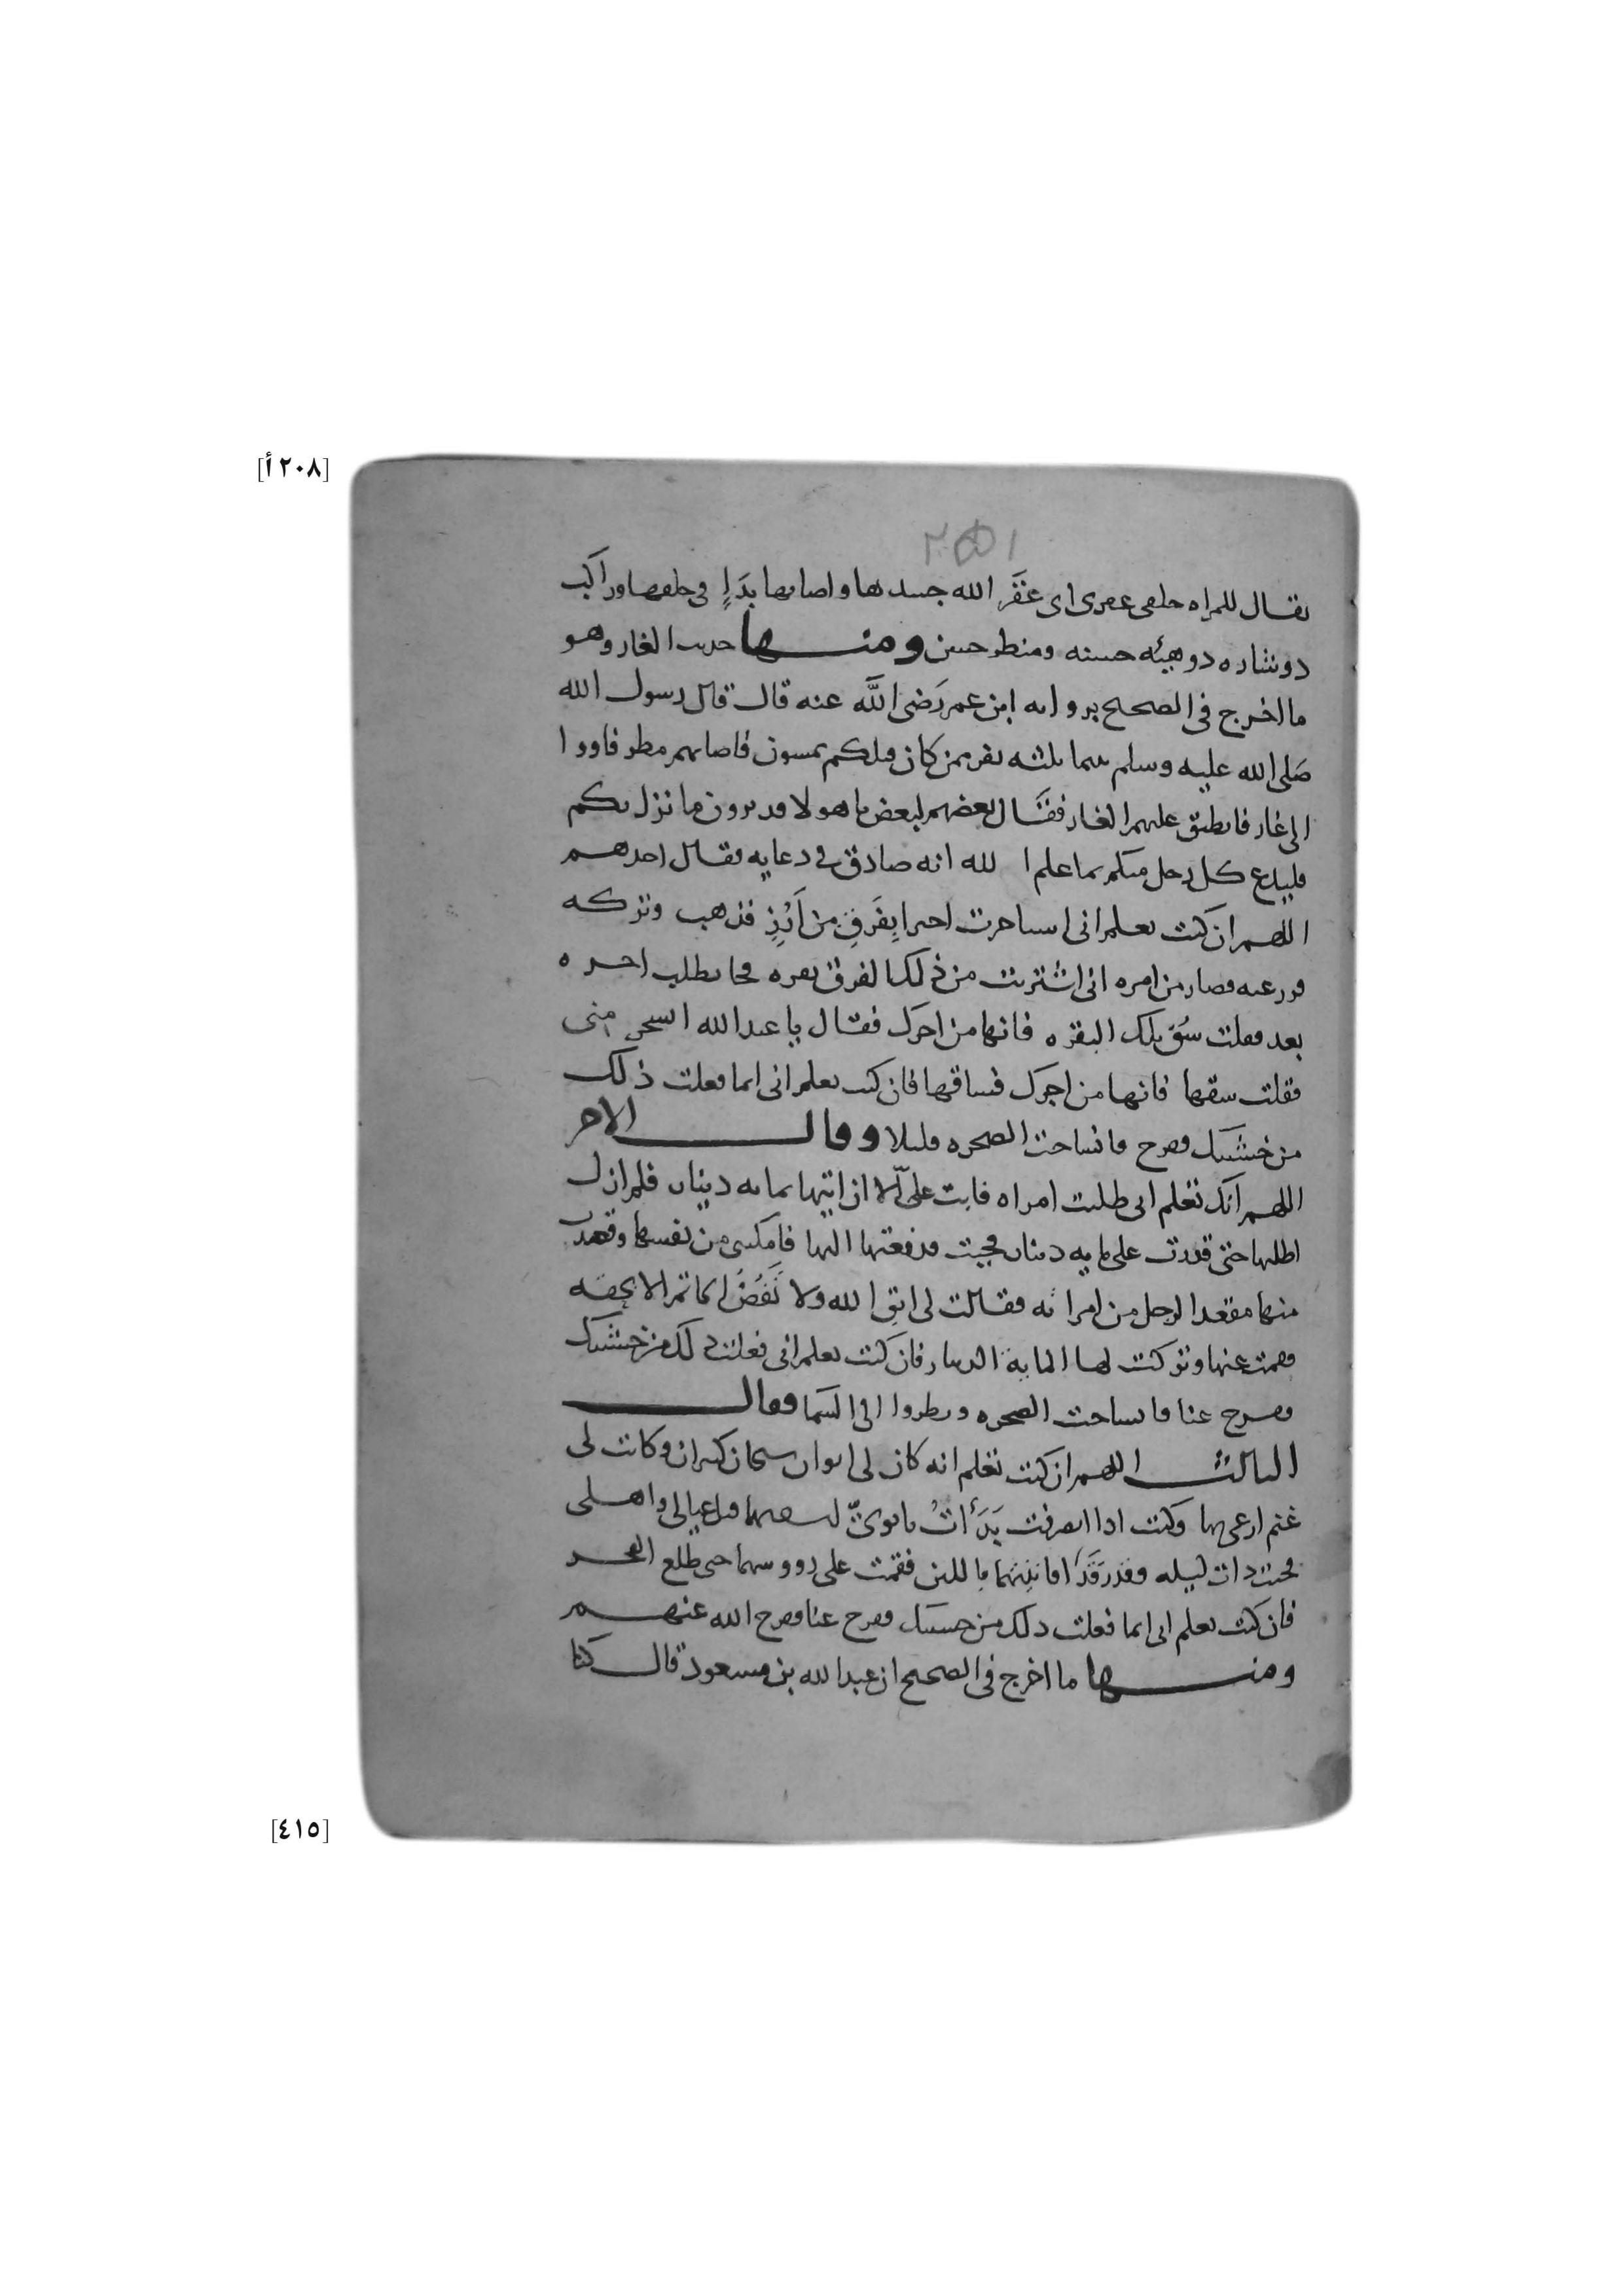 [٢٠٨ أ]
يقال للمراه حلقى عقرى اى عَقَر الله جسدها واصابها بدَاءٍ في حلقها وراكب
ذو شاره ذو هيئه حسنه ومنظر حسن ومنها حديث الغار وهو
ما اخرج في الصحيح برواية ابن عمر رَضى الله عنه قال قال رسول الله
صَلى الله عليه وسلم بينما ثلثه نفر ممن كان قبلكم يمشون فاصابهم مطر فاووا
الى غار فانطبق عليهم الغار فقال بعضهم لبعض يا هولا قد ترون ما نزل بكم
فليدع كل رجل منكم بما علم الله انه صادق في دعايه فقال احدهم
اللهم ان كنت تعلم انى استاجرت اجيرا بِفَرَقٍ من اَرُزٍ فذهب وتركه
فزرعته فصار من امره انى اشتريت من ذلك الفرق بقره فجا يطلب اجره
بعد فقلت سُق تلك البقره فانها من اجرك فقال يا عبد الله اتسخر منى
فقلت سقها فانها من اجرك فساقها فان كنت تعلم انى انما فعلت ذلك
من خشيتك ففرج فانساحت الصخره قليلا وقال الاخر
اللهم انك تعلم انى طلبت امراه فابت علىّ الا ان اتيها بمايه دينار فلم ازل
اطلبها حتى قدرت على مايه دينار فجيت فدفعتها اليها فامكنتنى من نفسها وقعدت
منها مقعد الرجل من امراته فقالت لى اتقِ الله ولا تَفُضَّ الخاتم الا بحقه
فقمت عنها وتركت لها المايه الدينار فان كنت تعلم انى فعلت ذلك من خشيتك
ففرج عنا فانساحت الصخره ونظروا الى السما فقال
الثالث اللهم ان كنت تعلم انه كان لى ابوان شيخان كبيران وكانت لى
غنم ارعى بها وكنت اذا انصرفت بَدَأتُ بابوىّ لسقيهما قبل عيالى واهلى
فجيت ذات ليله وقد رَقَدَا فاتيتهما باللبن فقمت على رووسهما حتى طلع الفجر
فان كنت تعلم انى انما فعلت ذلك من خشيتك ففرج عنا ففرج الله عنهم
ومنها ما اخرج في الصحيح ان عبد الله بن مسعود قال كنا
[٤١٥]